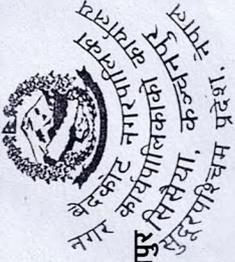 बेदकोट नगरपालिका
नगर कार्यपालिकाको कार्यालय
पुर
सिसैया, कञ्चनपुर
सुदूरपश्चिम प्रदेश, नेपाल